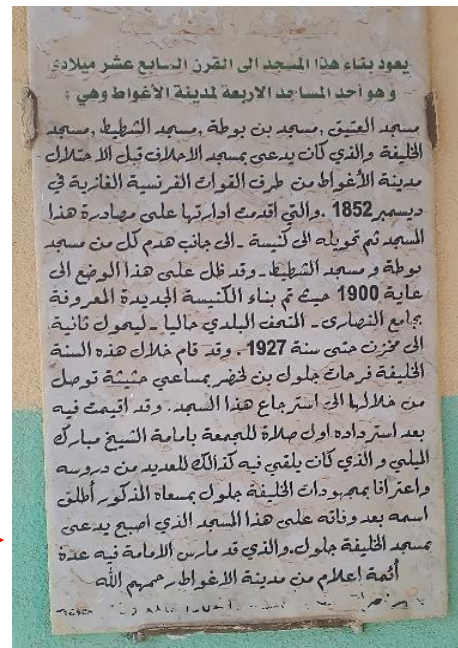 يعود بناء هذا المسجد الى القرن السابع عشر ميلادي
و هو أحد المساجد الاربعة لمدينة الأغواط وهي :
مسجد العتيق ,مسجد بن بوطة ,مسجد الشطيط ,مسجد
الخليفة والذي كان يدعى بمسجد الاحلاف قبل الاحتلال
مدينة الأغواط من طرف القوات الفرنسية الغازية في
ديسمبر 1852 .والتي اقدمت ادارتها على مصادرة هذا
المسجد ثم تحويله الى كنيسة - الى جانب هدم كل من مسجد
بوطة و مسجد الشطيط - وقد ظل على هذا الوضع الى
غاية 1900 حيث تم بناء الكنيسة الجديدة المعروفة
بجامع النصارى - المتحف البلدي حاليا - ليحول ثانية
الى مخزن حتى سنة 1927 . وقد قام خلال هذه السنة
الخليفة فرحات جلول بن لخضر بمساعي حثيثة توصل
من خلالها الى استرجاع هذا المسجد. وقد اقيمت فيه
بعد استرداده اول صلاة للجمعة بامامة الشيخ مبارك
الميلي و الذي كان يلقي فيه كذالك للعديد من دروسه
واعترافا بمجهودات الخليفة جلول بمسعاه المذكور أطلق
اسمه بعد وفاته على هذا المسجد الذي اصبح يدعى
بمسجد الخليفة جلول.والذي قد مارس الامامة فيه عدة
أئمة اعلام من مدينة الاغواط رحمهم الله